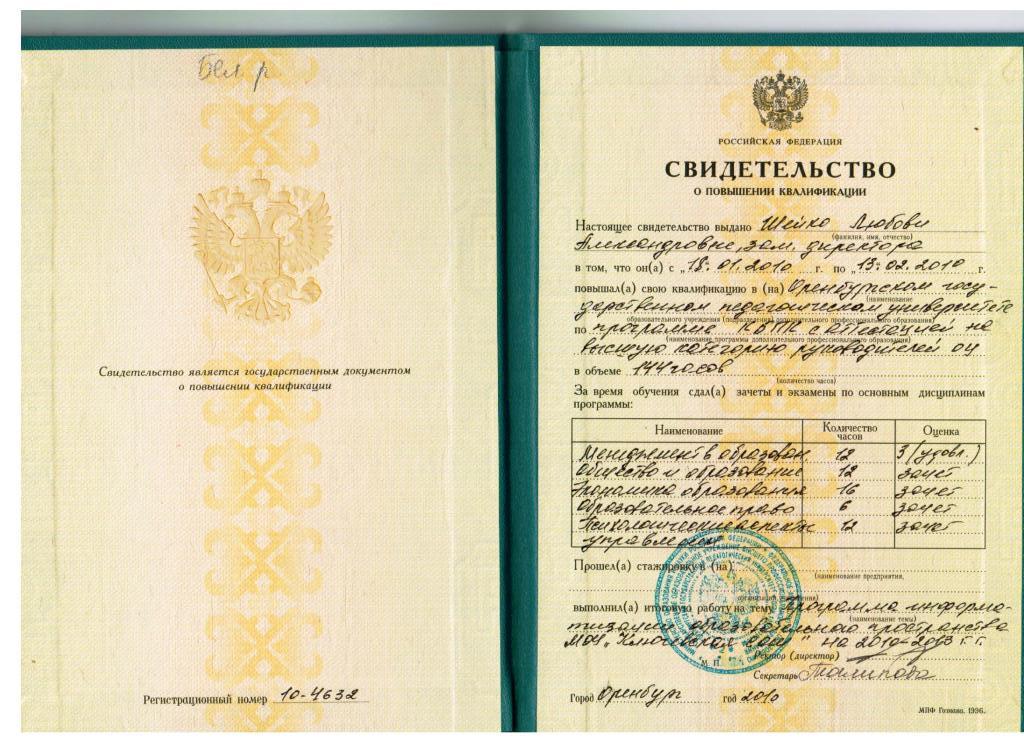 Свидетельство является государственным документом
о повышении квалификации
Регистрационный номер 10-4632
РОССИЙСКАЯ ФЕДЕРАЦИЯ
СВИДЕТЕЛЬСТВО
О ПОВЫШЕНИИ КВАЛИФИКАЦИИ
Настоящее свидетельство выдано Шейко Любови
(фамилия, имя, отчество)
Александровне, зам. директора
в том, что он(а) с „18.01.2010 г. по „13.02.2010 г.
повышал(а) свою квалификацию в (на) Оренбургском госу-
(наименование
дарственном педагогическом университете
образовательного учреждения (подразделения) дополнительного профессионального образования)
по программе КБПК с аттестацией на
(наименование программы дополнительного профессионального образования)
высшую категорию руководителей ОУ
в объеме 144 часов
(количество часов)
За время обучения сдал(а) зачеты и экзамены по основным дисциплинам
программы:
Наименование Количество часов Оценка
Менеджмент в образован. 12 3 (удовл.)
Общество и образование 12 зачет
Экономика образования 16 зачет
Образовательное право 6 зачет
Психологические аспекты 12 зачет
управления
Прошел(а) стажировку в (на)
(наименование предприятия,
выполнил(а) итоговую работу на тему Программа информа-
(наименование темы)
тизации образовательного пространства
МОУ „Ключевская СОШ" на 2010-2013 г.г.
Ректор (директор)
М. П.
Секретарь
Город Оренбург год 2010
МПФ Гознака. 1996.